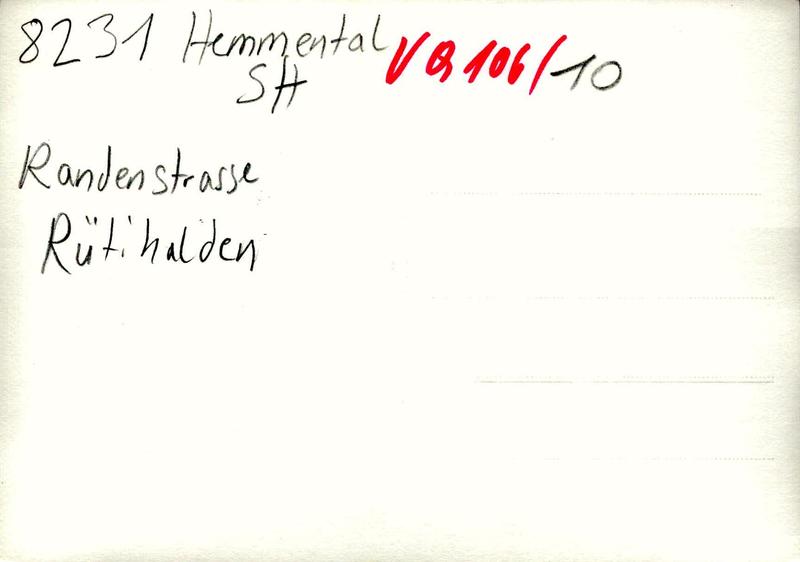 8231 Hemmental VQ106/10
SH
Randenstrasse
Rütihalden